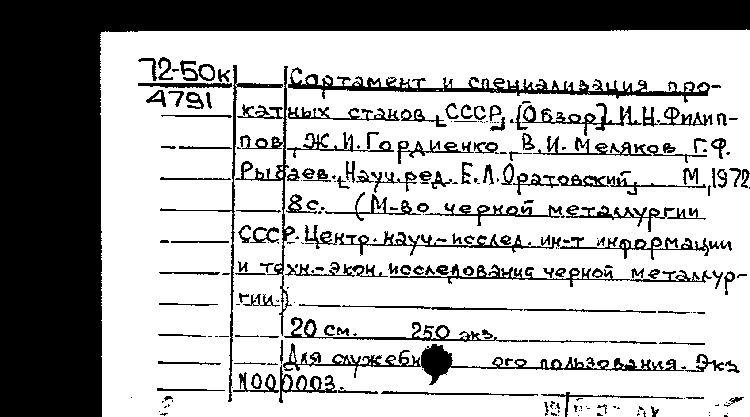 72-50к Сортамент и специализация про-
4791
катных станов [СССР]. [Обзор]. И.Н.Филип-
пов, Ж.И.Гордиенко, В.И.Меляков, Г.Ф.
Рыбаев. [Науч.ред. Е.Л.Оратовский]. М, 1972
8с. (М-во черной металлургии
СССР. Центр. науч-исслед. ин-т информации
и техн.-экон. исследования черной металлур-
гии.)
20 см. 250 экз.
Для служебн ого пользования. Экз
№000003.